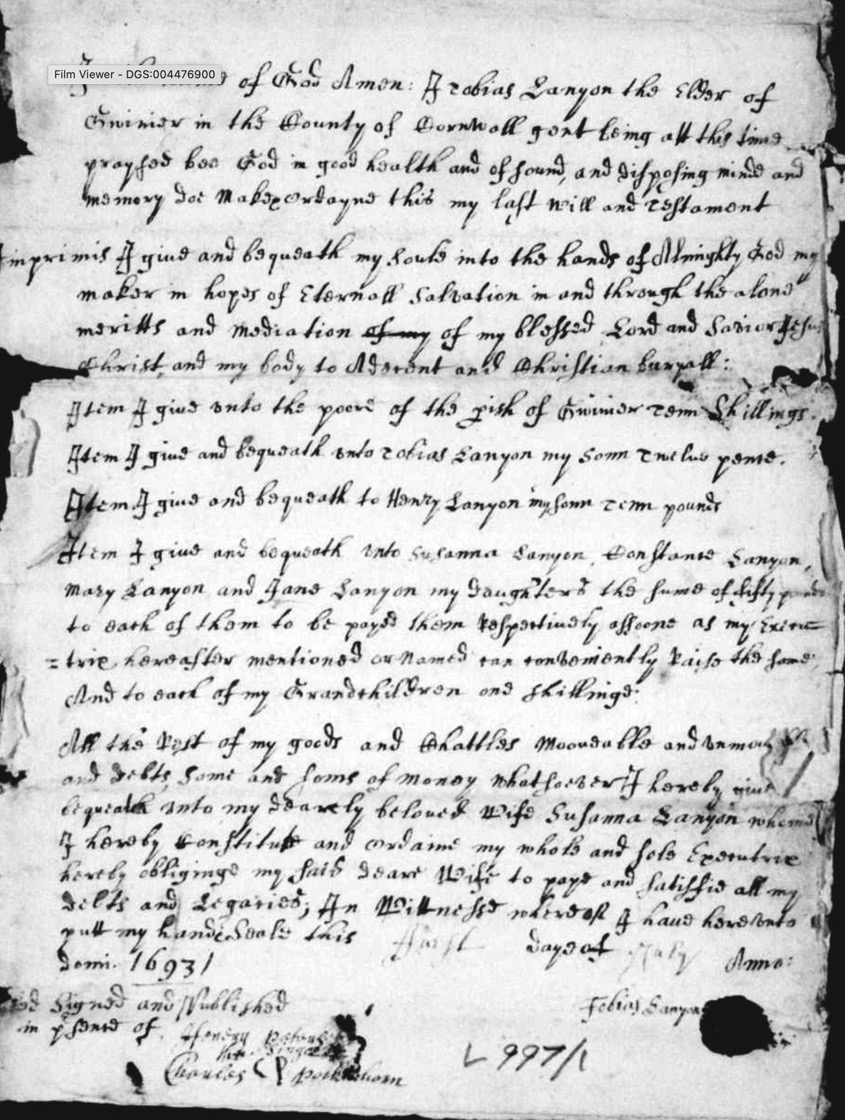 Film Viewer - DGS:004476900
of God Amen: I Tobias Lanyon the Elder of
Gwinier in the County of Cornwall gent being att this time
praysed bee God in good health and of sound, and disposing minde and
memory doe make & ordayne this my last will and Testament
Imprimis I give and bequeath my soule into the hands of Almighty God my
maker in hopes of Eternall Salvation in and through the alone
meritts and mediation of my of my blessed Lord and Savior Jesus
Christ, and my body to A decent and Christian buryall:
Item I give unto the poore of the pish of Gwinier Tenn Shillings.
Item I give and bequeath unto Tobias Lanyon my sonn Twelve pence.
Item I give and bequeath to Henry Lanyon my sonn Tenn pounds
Item I give and bequeath unto Susanna Lanyon, Constance Lanyon,
Mary Lanyon and Jane Lanyon my daughters the sume of fifty
to each of them to be payed them Respectively assoone as my Execu
=trix hereafter mentioned or named can conveniently Raise the same,
And to each of my Grandchildren one shillinge:
All the Rest of my goods and Chattles mooveable and
and debts, some and soms of money whatsoever I hereby give
bequeath unto my dearely beloved Wife Susanna Lanyon whome
I hereby Constitute and ordaine my whole and sole Executrix
hereby obliginge my said deare Wife to paye and satisfie all my
debts and Legacies; In Wittnesse whereof I have hereunto
putt my hand & Seale this first daye of July Anno:
domi: 1693
Signed and Published
in psence of. Tobias Lanyon
Henry
Charles
L 997/1